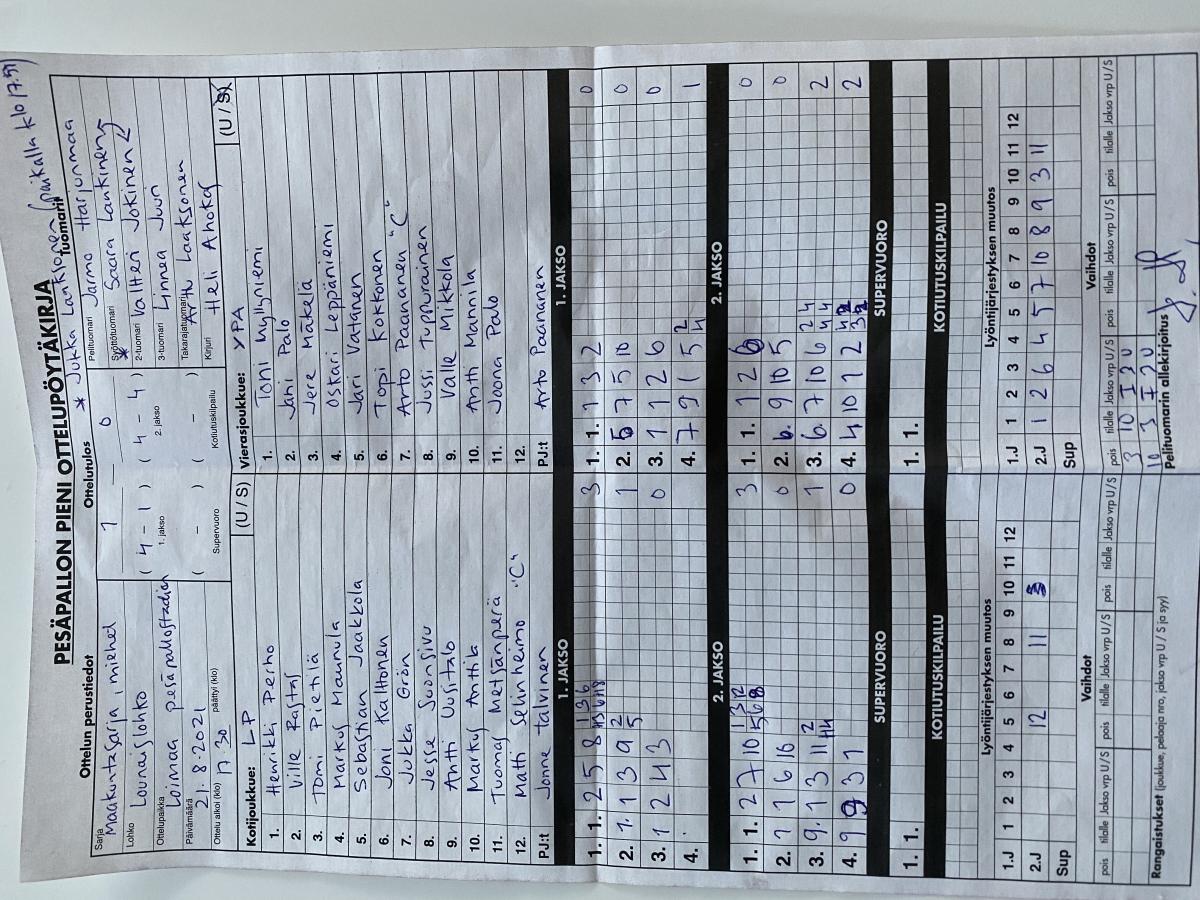 * Jukka Lanksonen paikalla klo 17:51
PESÄPALLON PIENI OTTELUPÖYTÄKIRJA
Ottelun perustiedot
Ottelutulos
Tuomarit
Sarja Maakuntasarja, miehet
Lohko Lounaislohko
Ottelupaikka Loimaa pesäpallostadion
Päivämäärä 21.8.2021
Ottelu alkoi (klo) 17.30 päättyi (klo)
1 – 0
( 4 – 1 ) ( 4 – 4 )
1. jakso 2. jakso
( – ) ( – )
Supervuoro Kotiutuskilpailu
Pelituomari Jarmo Harjunmaa
Syöttötuomari * Saara Lankinen
2-tuomari Valtteri Jokinen
3-tuomari Linnea Juun
Takarajatuomari Arttu Laaksonen
Kirjuri Heli Ahokas
Kotijoukkue: LP (U / S)
1. Henrikki Perho
2. Ville Rastas
3. Tomi Pietilä
4. Markus Maunula
5. Sebastian Jaakkola
6. Joni Kaltonen
7. Jukka Grön
8. Jesse Suonsivu
9. Antti Uusitalo
10. Markus Anttila
11. Tuomas Metsänperä
12. Matti Selinheimo "C"
PJ:t Jonne Talvinen
Vierasjoukkue: YPA (U / S)
1. Toni Myllyniemi
2. Jani Palo
3. Jere Mäkelä
4. Oskari Leppäniemi
5. Jari Vatanen
6. Topi Kokkonen
7. Arto Paananen "C"
8. Jussi Tuppurainen
9. Valle Mikkola
10. Antti Mannila
11. Joona Palo
12.
PJ:t Arto Paananen
1. JAKSO
1. JAKSO
1. 1. 2 5 8 3
2. 1 1 3 9 2 5 1
3. 1 2 4 3 0
4.
1. 1. 1 3 2 0
2. 5 7 5 10 0
3. 1 1 2 6 0
4. 7 9 1 5 2 4 1
2. JAKSO
2. JAKSO
1. 1. 2 7 10 3
2. 1 1 6 0
3. 9 1 3 11 1
4. 9 3 1 0
1. 1. 1 2 6 0
2. 6. 9 10 5 0
3. 6. 7 10 6 2
4. 4 10 1 2 2
SUPERVUORO
SUPERVUORO
1. 1.
1. 1.
KOTIUTUSKILPAILU
KOTIUTUSKILPAILU
Lyöntijärjestyksen muutos
1.J 1 2 3 4 5 6 7 8 9 10 11 12
2.J 12 11 3
Sup
Lyöntijärjestyksen muutos
1.J 1 2 3 4 5 6 7 8 9 10 11 12
2.J 1 2 6 4 5 7 10 8 9 3 11
Sup
Vaihdot
pois tilalle Jakso vrp U/S pois tilalle Jakso vrp U/S pois tilalle Jakso vrp U/S
Vaihdot
pois tilalle Jakso vrp U/S pois tilalle Jakso vrp U/S pois tilalle Jakso vrp U/S
3 10 I 2 U
10 3 I 2 U
Rangaistukset (joukkue, pelaaja nro, jakso vrp U / S ja syy)
Pelituomarin allekirjoitus